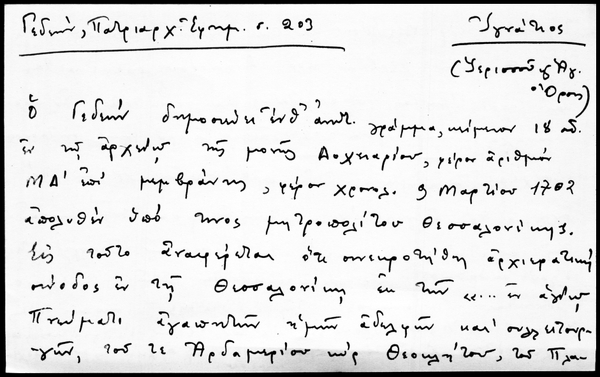 Γεδεών, Πατριαρχ. Εφημ. σ. 203
Ἰγνάτιος
(Ἱερισσοῦ & Ἁγ.
Ὄρους)
Ὁ Γεδεὼν δημοσιεύει ἐνθ' ἀνωτ. γράμμα, κείμενον 18 αἰ.
ἐν τῷ ἀρχείῳ τῆς μονῆς Δοχειαρίου, φέρον ἀριθμὸν
ΜΔ' ἐπὶ μεμβράνης, φέρον χρονολ. 9 Μαρτίου 1702
ἀπολυθὲν ὑπό τινος μητροπολίτου Θεσσαλονίκης.
Εἰς τοῦτο ἀναφέρεται ὅτι συνεκροτήθη ἀρχιερατικὴ
σύνοδος ἐν τῇ Θεσσαλονίκῃ ἐκ τῶν «... ἐν ἁγίῳ
Πνεύματι ἀγαπητῶν ἡμῶν ἀδελφῶν καὶ συλλειτουρ-
γῶν, τοῦ τε Ἀρδαμερίου κὺρ Θεοκλήτου, τοῦ Πλα-